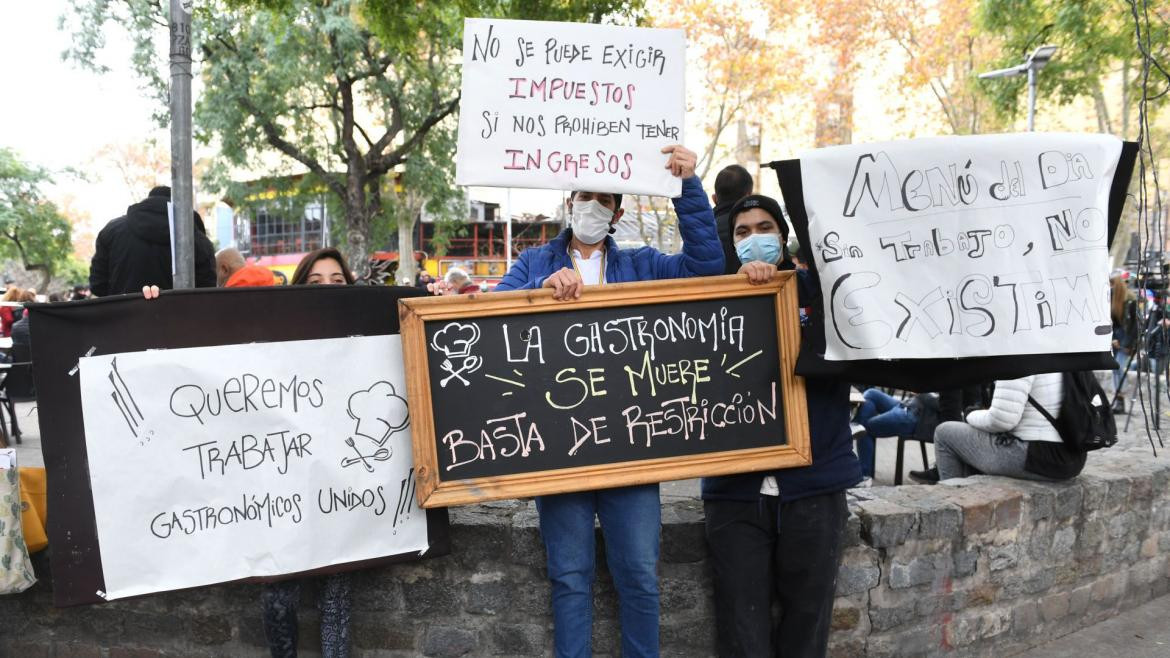 No se puede exigir
impuestos
si nos prohiben tener
ingresos
Menú del Dia
*Sin Trabajo, NO
Existimo
La Gastronomia
se Muere
Basta de Restricción
Queremos
Trabajar
Gastronómicos Unidos !!!